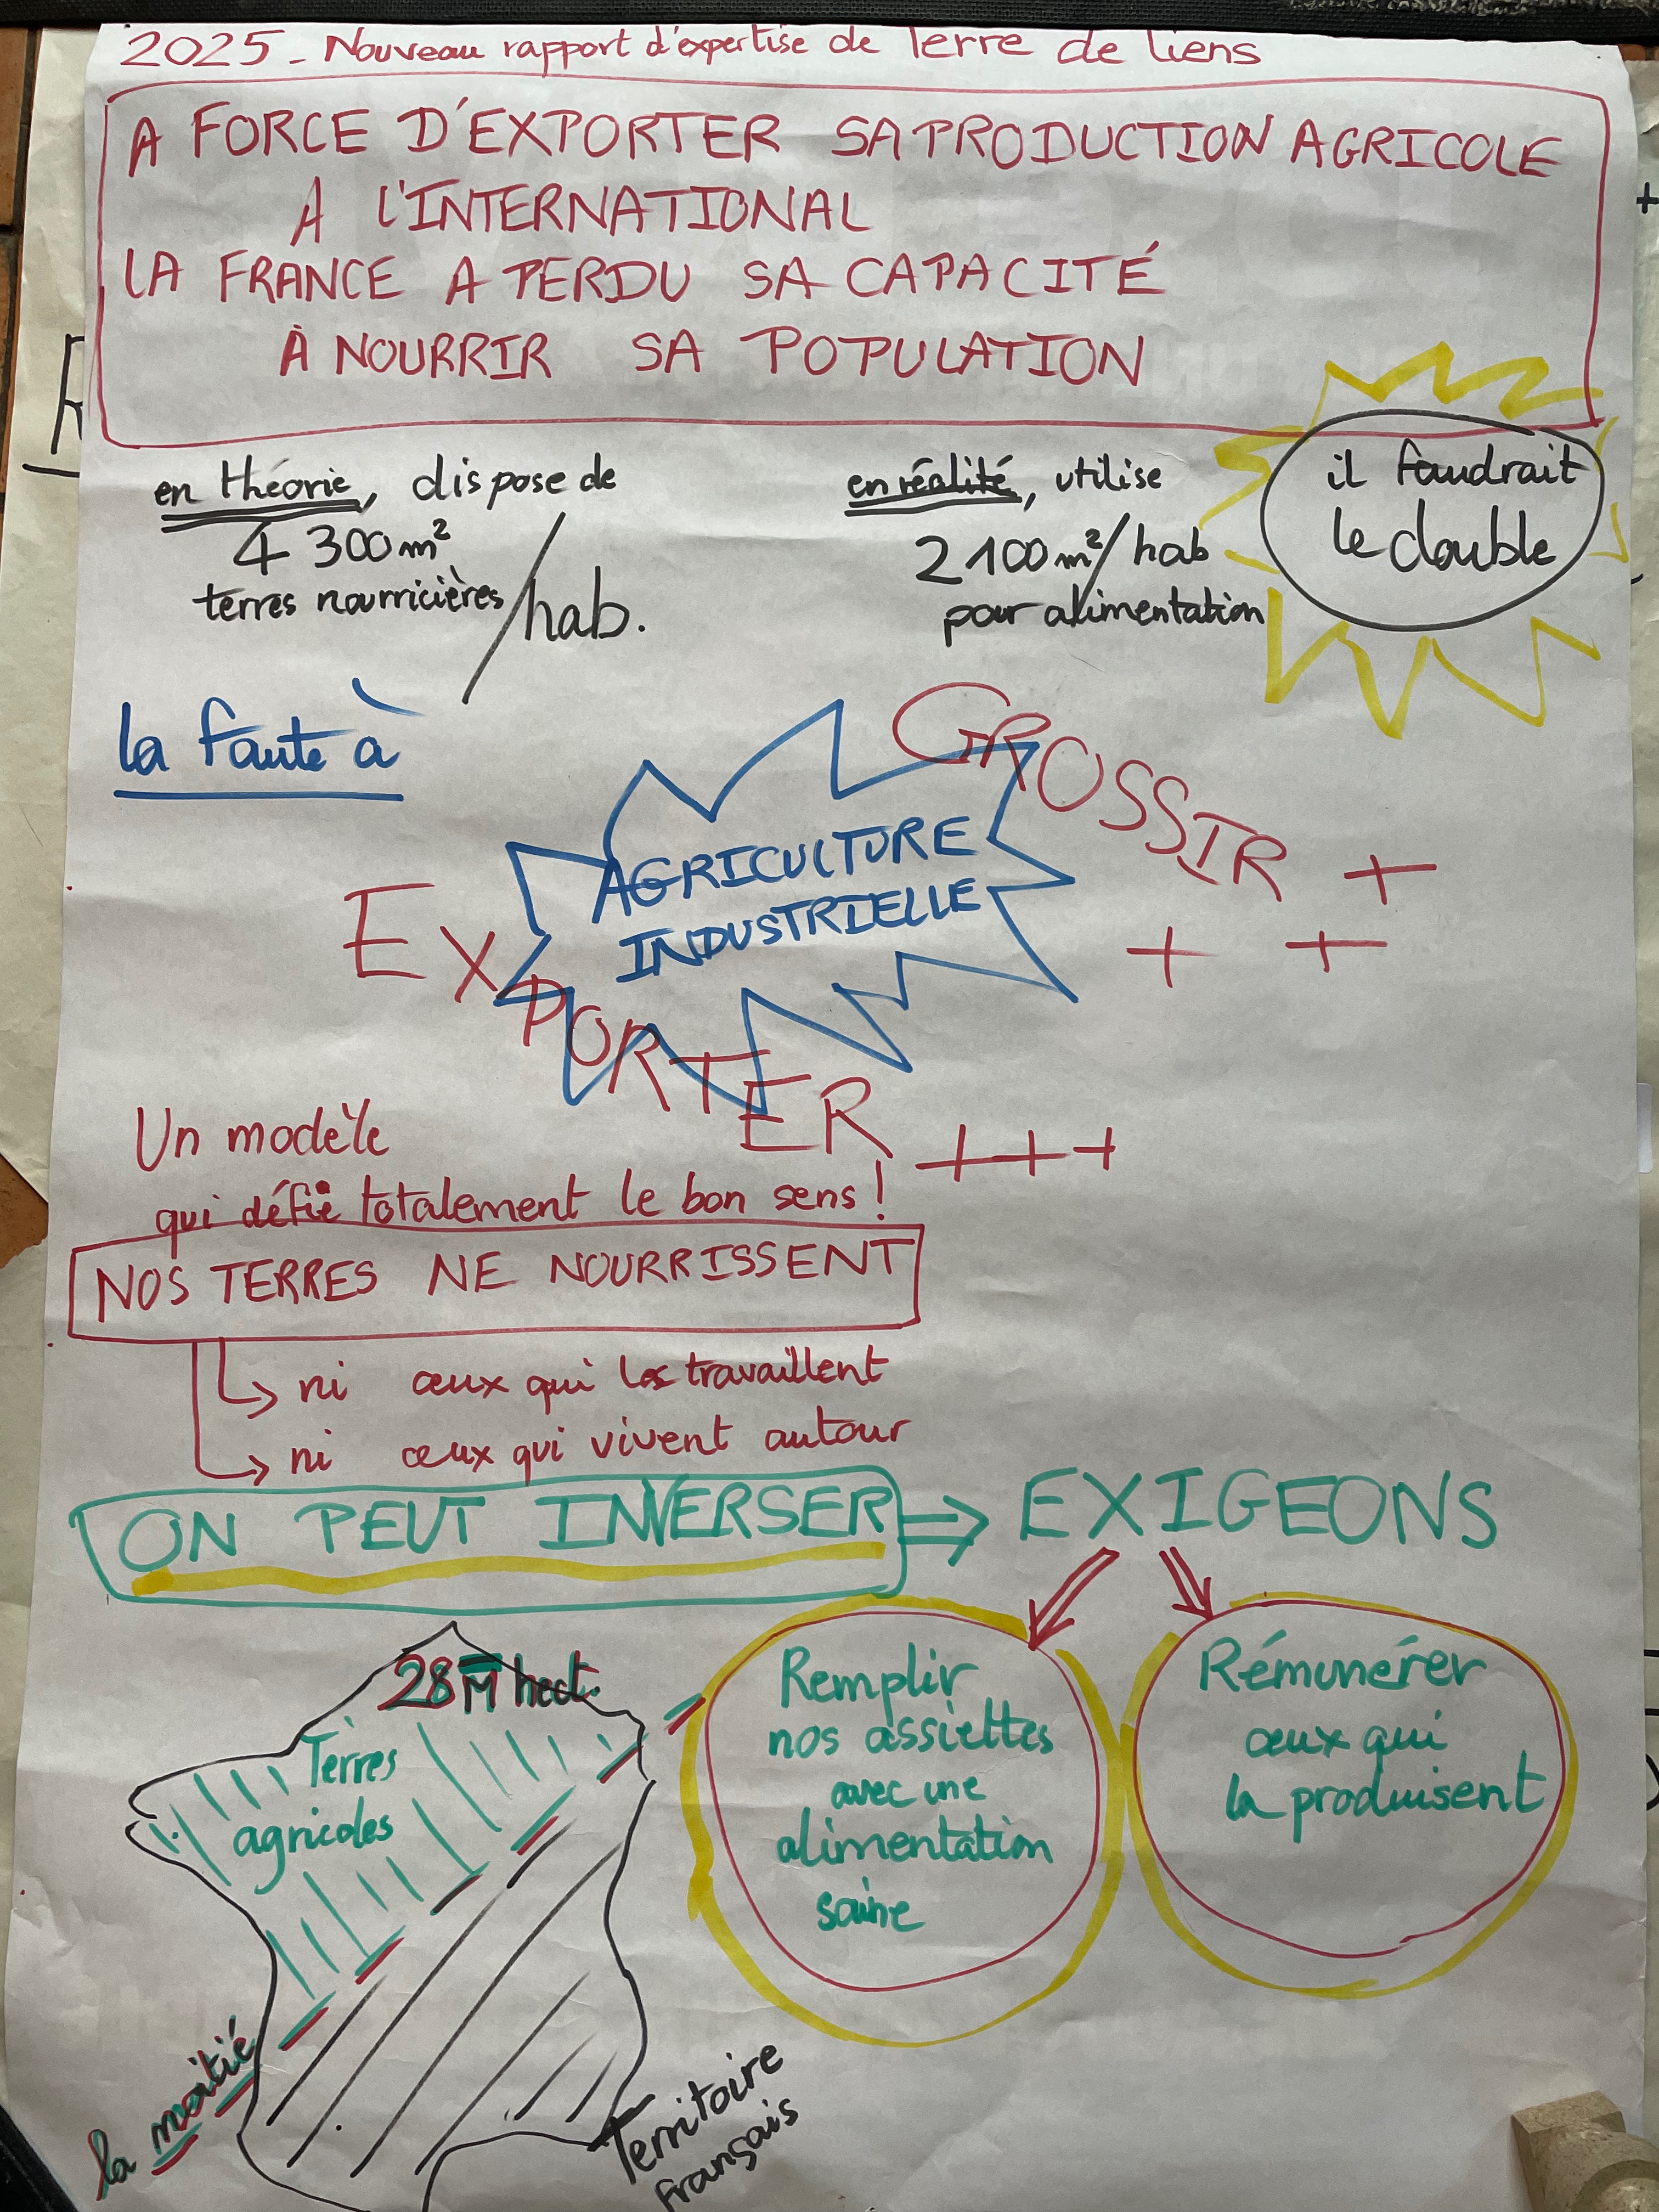 2025 - Nouveau rapport d'expertise de Terre de liens
A FORCE D'EXPORTER SA PRODUCTION AGRICOLE
A L'INTERNATIONAL
LA FRANCE A PERDU SA CAPACITÉ
À NOURRIR SA POPULATION
en théorie, dispose de
4 300 m²
terres nourricières /hab.
en réalité, utilise
2 100 m²/hab
pour alimentation
il faudrait
le double
la faute à
AGRICULTURE
INDUSTRIELLE
GROSSIR +
+ +
EXPORTER +++
Un modèle
qui défie totalement le bon sens !
NOS TERRES NE NOURRISSENT
ni ceux qui les travaillent
ni ceux qui vivent autour
ON PEUT INVERSER ⇒ EXIGEONS
Remplir
nos assiettes
avec une
alimentation
saine
Rémunérer
ceux qui
la produisent
28 M hect.
Terres
agricoles
la moitié
Territoire
français